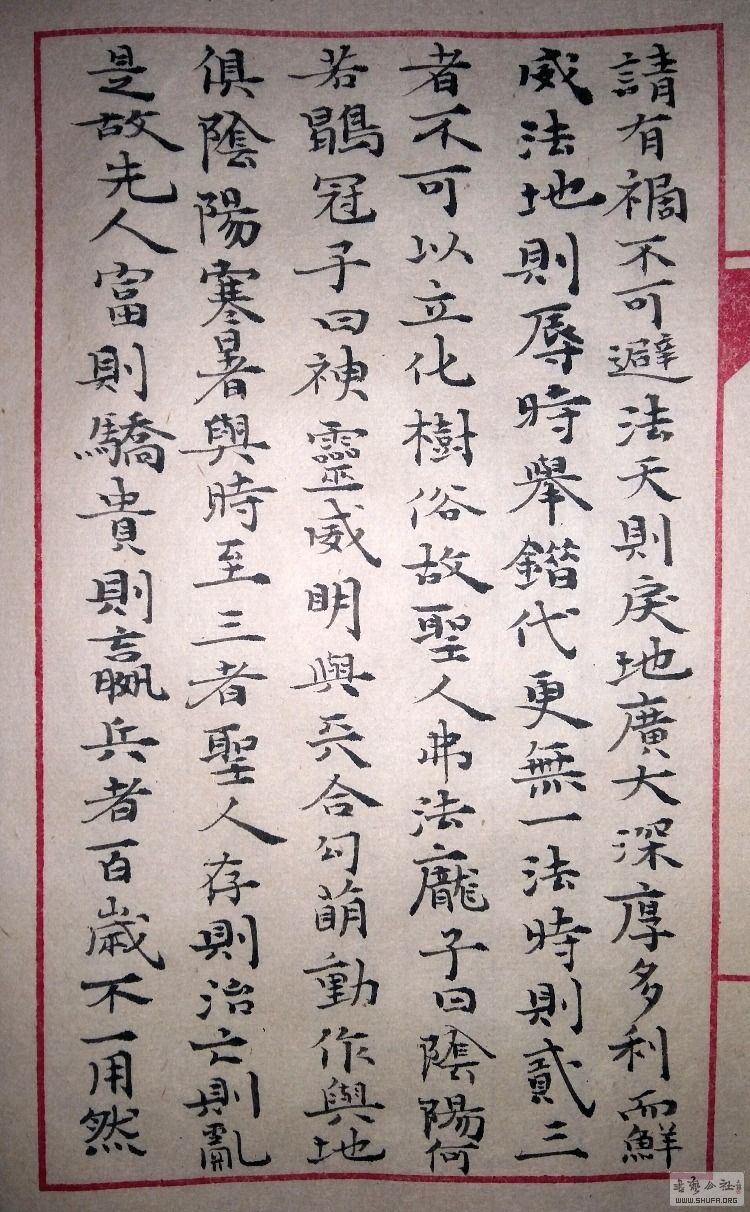 請有禍不可避法天則戾地廣大深厚多利而鮮
威法地則辱時舉錯代更無一法時則貳三
者不可以立化樹俗故聖人弗法龐子曰陰陽何
若鶡冠子曰神靈威明與天合勾萌動作與地
俱陰陽寒暑與時至三者聖人存則治亡則亂
是故先人富則驕貴則嬴兵者百歲不一用然
書藝公社
WWW.SHUFA.ORG